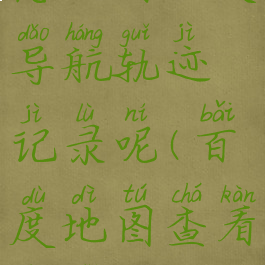 dǎo háng guǐ jì
导航轨迹
jì lù ní bǎi
记录呢(百
dù dì tú chá kàn
度地图查看